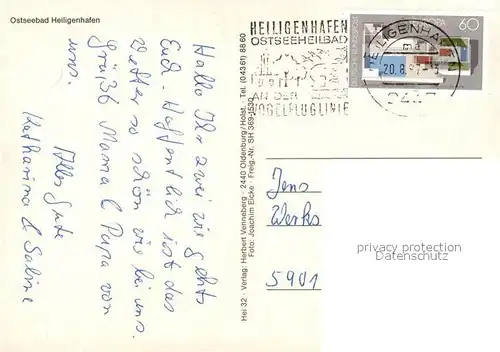 Ostseebad Heiligenhafen
Hallo Ihr zwei wie gehts
Euch. Hoffentlich ist das
Wetter so schön wie bei uns.
Grüßt Mama & Papa von
uns
Alles Gute
Katharina & Sabine
Hei 32 · Verlag: Herbert Venneberg · 2440 Oldenburg/Holst. · Tel. (04361) 8860
Foto: Joachim Eicke · Freig.-Nr. SH 369-1530
HEILIGENHAFEN
OSTSEEHEILBAD
AN DER
VOGELFLUGLINIE
HEILIGENHAFEN
20.8.
2447
DEUTSCHE BUNDESPOST
EUROPA
60
Jens
Werks
5901
privacy protection
Datenschutz